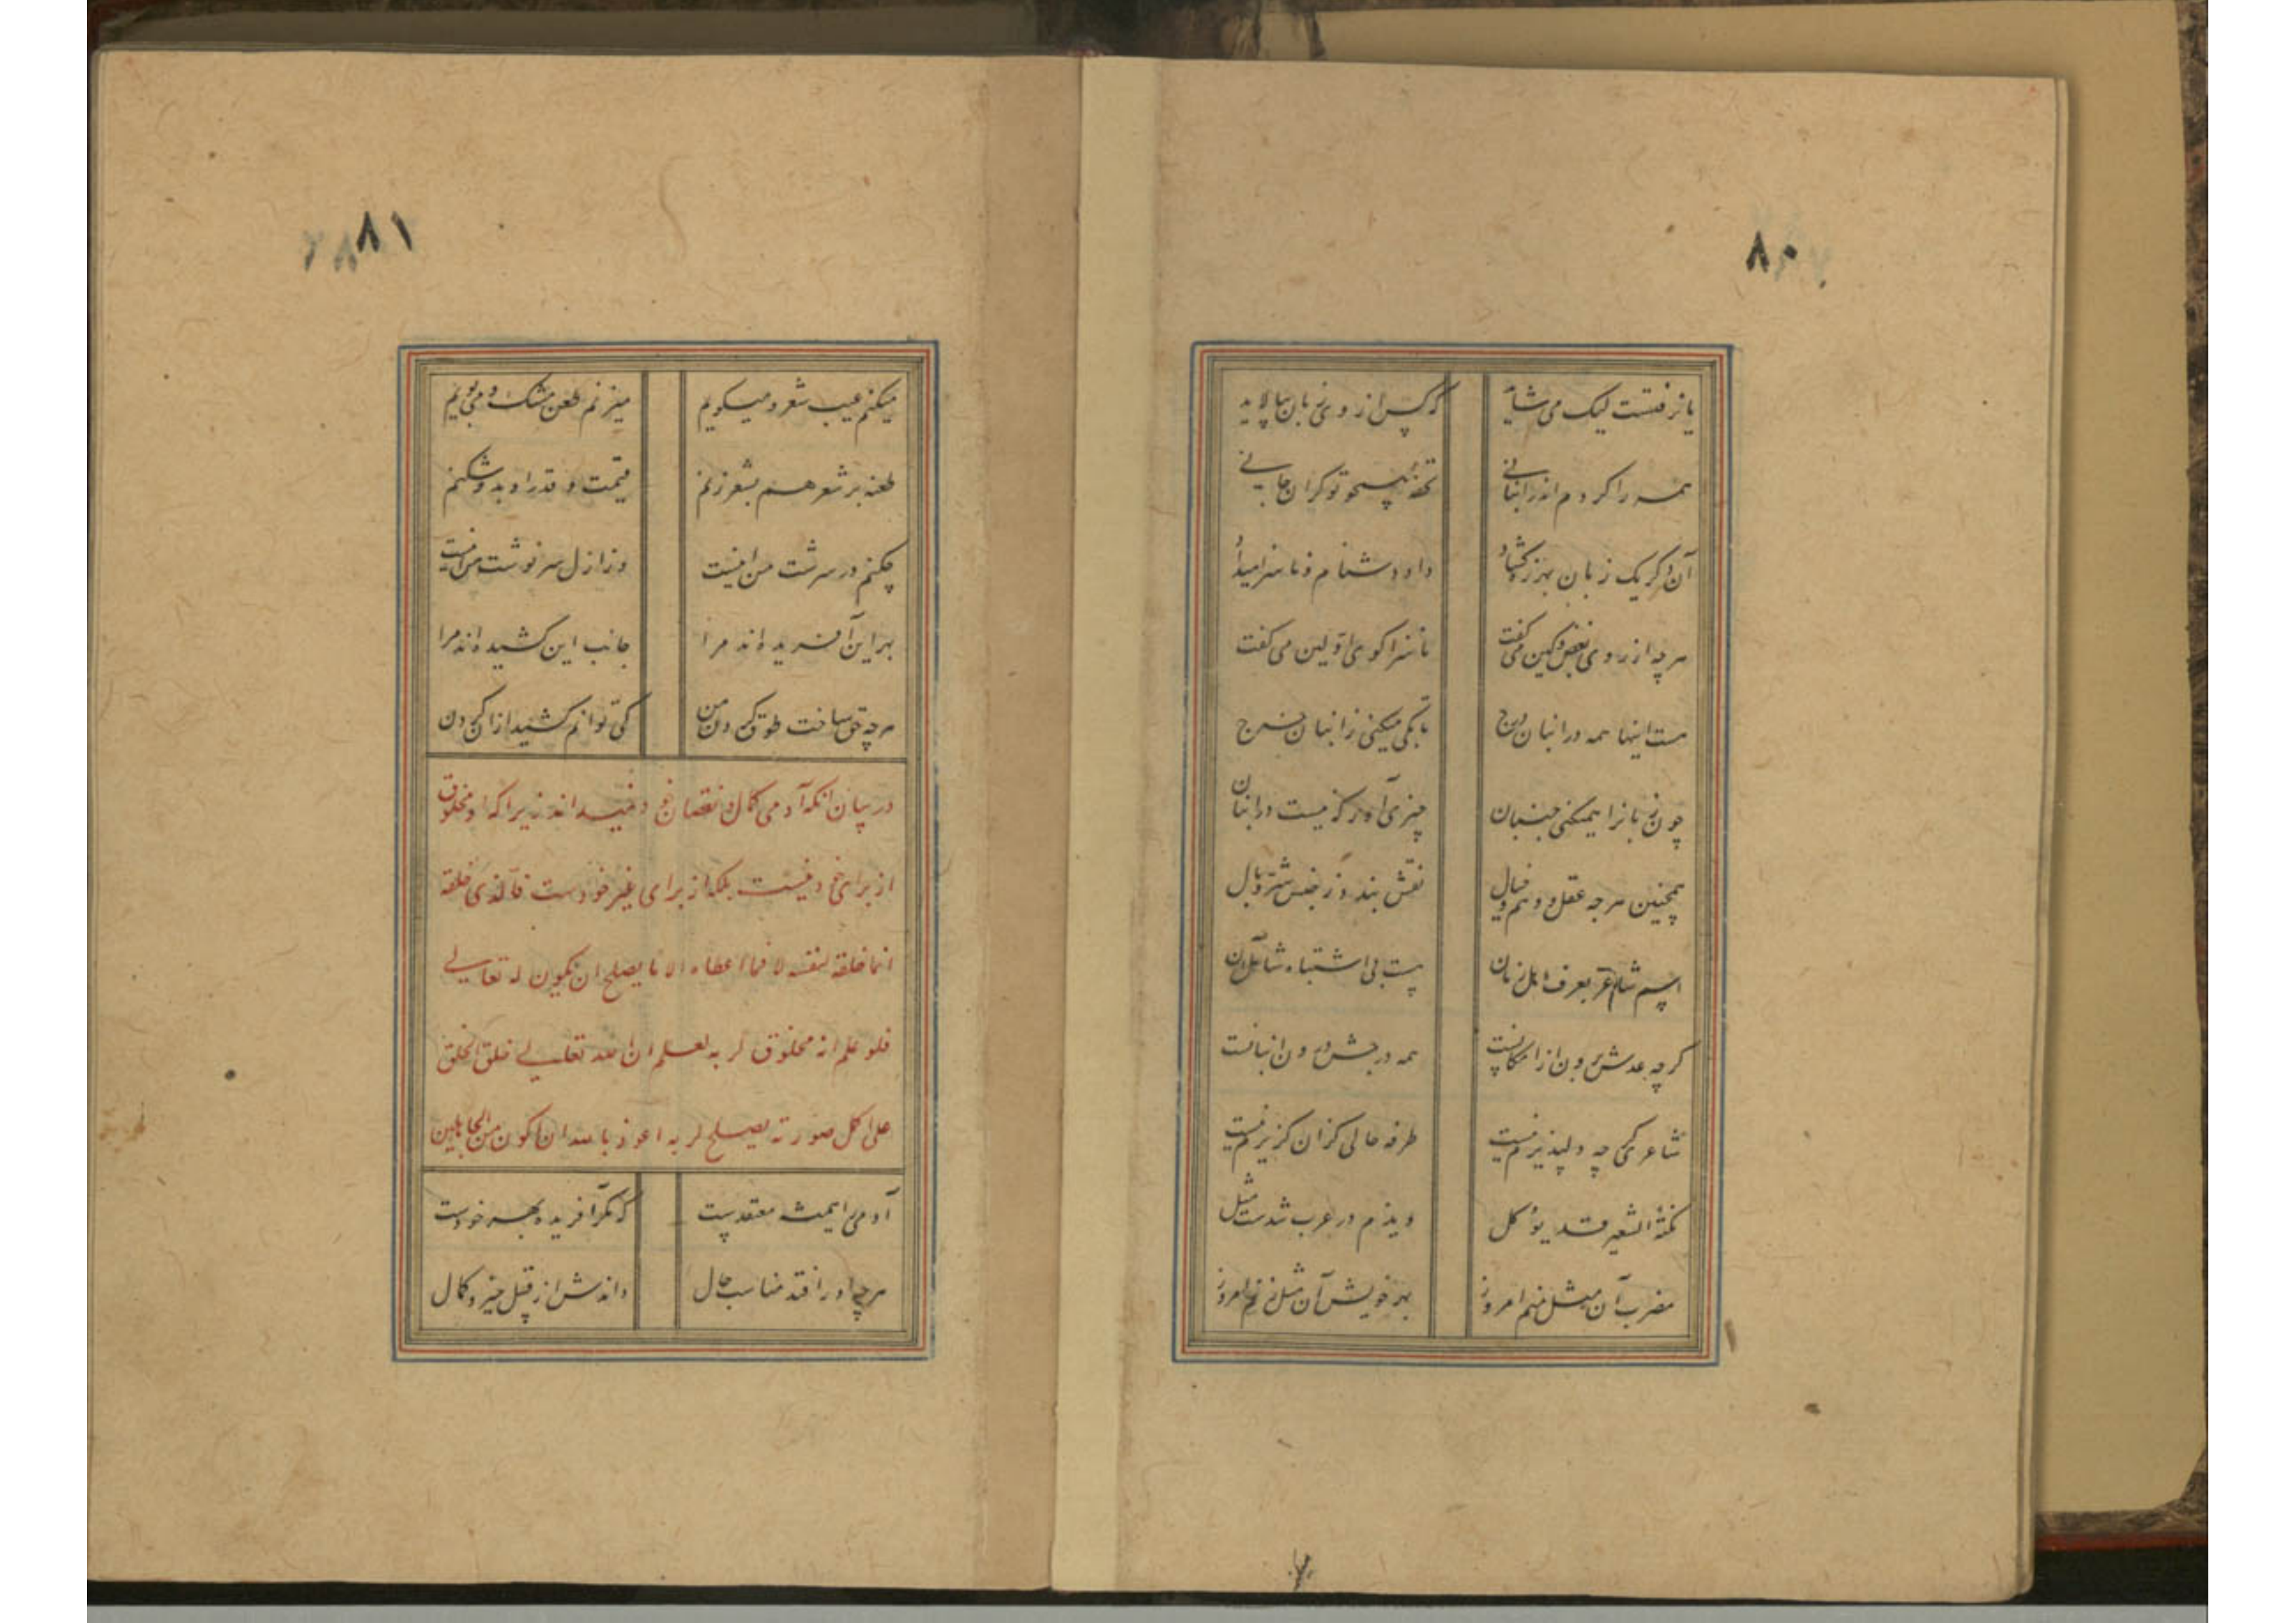 ۸۰
یا نرفتست لیک می شاید
کر پس از وی زبان بیالاید
همه را کردم اندر انبانی
تحفهٔ همچو تو کران جانی
آن دکر یک زبان بهرزه کشاد
داد دشنام و ناسزا میداد
هر چه از روی بغض و کین می کفت
ناسزا کوی اولین می کفت
هست اینها همه در انبان درج
تا بکی میکنی ز انبان خرج
چون زبانرا همیکنی جنبان
چیزی آه که نیست در انبان
همچنین هر چه عقل و وهم و خیال
نقش بندد ز جنس شعر و بال
اسم شاعر بعرف اهل زبان
هست بی اشتباه شامل آن
کرچه عدش برون از امکانست
همه در جش درون انبانست
شاعری کرچه دلپذیرم نیست
طرفه حالی کزان کزیرم نیست
نکتهٔ الشعیر قد یؤکل
و یذم در عرب شدست مثل
مضرب آن مثل منم امروز
بهر خویش آن مثل زنم امروز
۸۱
میکنم عیب شعر و میکویم
میزنم طعن مشک و می بویم
طعنه بر شعر هم بشعر زنم
قیمت و قدر او بدو شکنم
چکنم در سرشت من اینست
وز ازل سرنوشت من اینست
بهر این آفریده اند مرا
جانب این کشیده اند مرا
هر چه حق ساخت طوق کردن من
کی توانم کشید ازان کردن
در بیان انکه آدمی کمال و نقصان خود نمیداند زیرا که او مخلوق
از برای خود نیست بلکه از برای غیر خودست فالذی خلقه
انما خلقه لنفسه لا فما اعطاه الا ما یصلح ان یکون له تعالی
فلو علم انه مخلوق لربه لعلم ان الله تعالی خلق الخلق
علی اکمل صورته یصلح لربه اعوذ بالله ان اکون من الجاهلین
آدمی را همیشه معتقدست
که مکر آفریده بهر خودست
هر چه او را فتد مناسب حال
داندش از قبل خیر و کمال